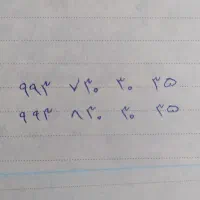 ۹۹۳ ۷۳۰ ۳۰ ۳۵
۹۹۳ ۸۳۰ ۳۰ ۳۵